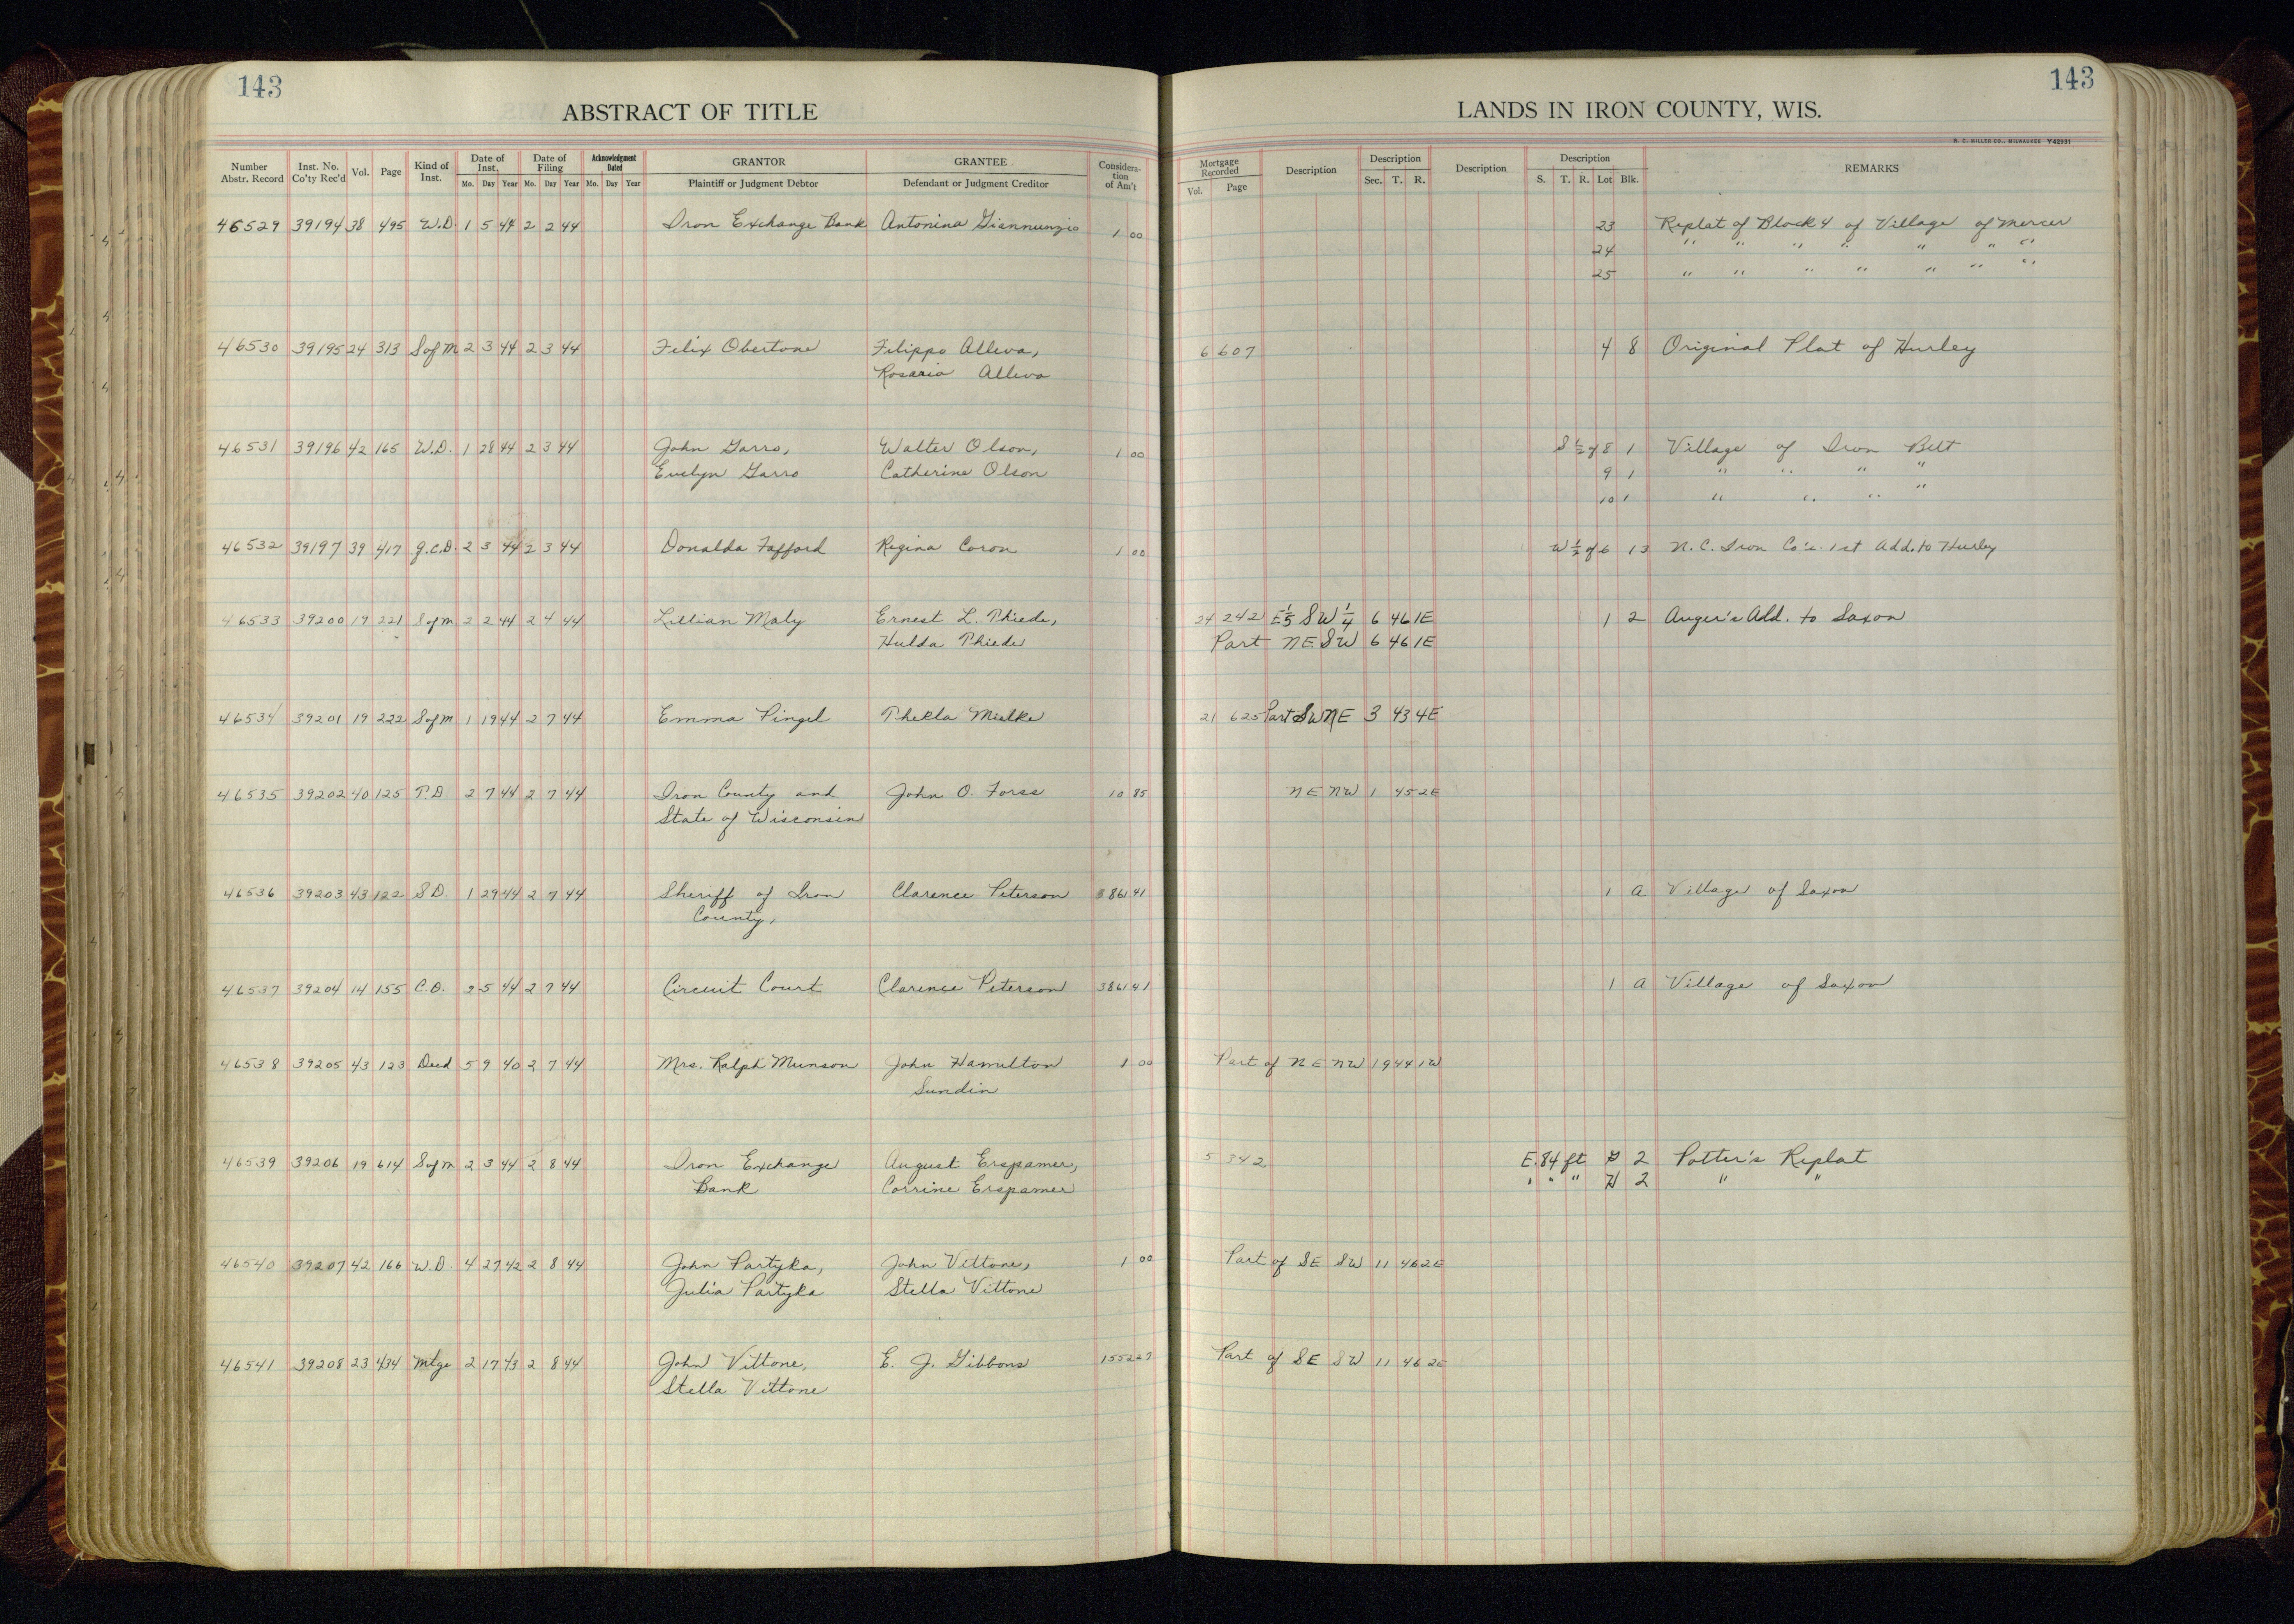 143
ABSTRACT OF TITLE
Number Abstr. Record Inst. No. Co'ty Rec'd Vol. Page Kind of Inst. Date of Inst. Mo. Day Year Date of Filing Mo. Day Year Acknowledgment Dated Mo. Day Year GRANTOR Plaintiff or Judgment Debtor GRANTEE Defendant or Judgment Creditor Considera-tion of Am't
46529 39194 38 495 W.D. 1 5 44 2 2 44 Iron Exchange Bank Antonina Giannunzio 1 00
46530 39195 24 313 S of M 2 3 44 2 3 44 Felix Obertone Filippo Alleva,
Rosaria Alleva
46531 39196 42 165 W.D. 1 28 44 2 3 44 John Garro, Walter Olson, 1 00
Evelyn Garro Catherine Olson
46532 39197 39 417 Q.C.D. 2 3 44 2 3 44 Donalda Fafford Regina Coron 1 00
46533 39200 19 221 S of M 2 2 44 2 4 44 Lillian Maly Ernest L. Thiede,
Hulda Thiede
46534 39201 19 222 S of M 1 19 44 2 7 44 Emma Pingel Thekla Mielke
46535 39202 40 125 T.D. 2 7 44 2 7 44 Iron County and John O. Forss 10 85
State of Wisconsin
46536 39203 43 122 S.D. 1 29 44 2 7 44 Sheriff of Iron Clarence Peterson 386 41
County,
46537 39204 14 155 C.O. 2 5 44 2 7 44 Circuit Court Clarence Peterson 386 41
46538 39205 43 123 Deed 5 9 40 2 7 44 Mrs. Ralph Munson John Hamilton 1 00
Sundin
46539 39206 19 614 S of M 2 3 44 2 8 44 Iron Exchange August Erspamer,
Bank Corrine Erspamer
46540 39207 42 166 W.D. 4 27 42 2 8 44 John Partyka, John Vittone, 1 00
Julia Partyka Stella Vittone
46541 39208 23 434 Mtge 2 17 43 2 8 44 John Vittone, E. J. Gibbons 1552 27
Stella Vittone
143
LANDS IN IRON COUNTY, WIS.
H. C. MILLER CO., MILWAUKEE Y42931
Mortgage Recorded Vol. Page Description Description Sec. T. R. Description Description S. T. R. Lot Blk. REMARKS
23 Replat of Block 4 of Village of Mercer
24 " " " " " " "
25 " " " " " " "
6 607 4 8 Original Plat of Hurley
S ½ of 8 1 Village of Iron Belt
9 1 " " " "
10 1 " " " "
W ½ of 6 13 N. C. Iron Co's. 1st Add. to Hurley
24 242 E 1/5 SW ¼ 6 46 1E 1 2 Auger's Add. to Saxon
Part NE SW 6 46 1E
21 625 Part SW NE 3 43 4E
NE NW 1 45 2E
1 A Village of Saxon
1 A Village of Saxon
Part of NE NW 19 44 1W
5 342 E. 84 ft G 2 Potter's Replat
" " " H 2 " "
Part of SE SW 11 46 2E
Part of SE SW 11 46 2E